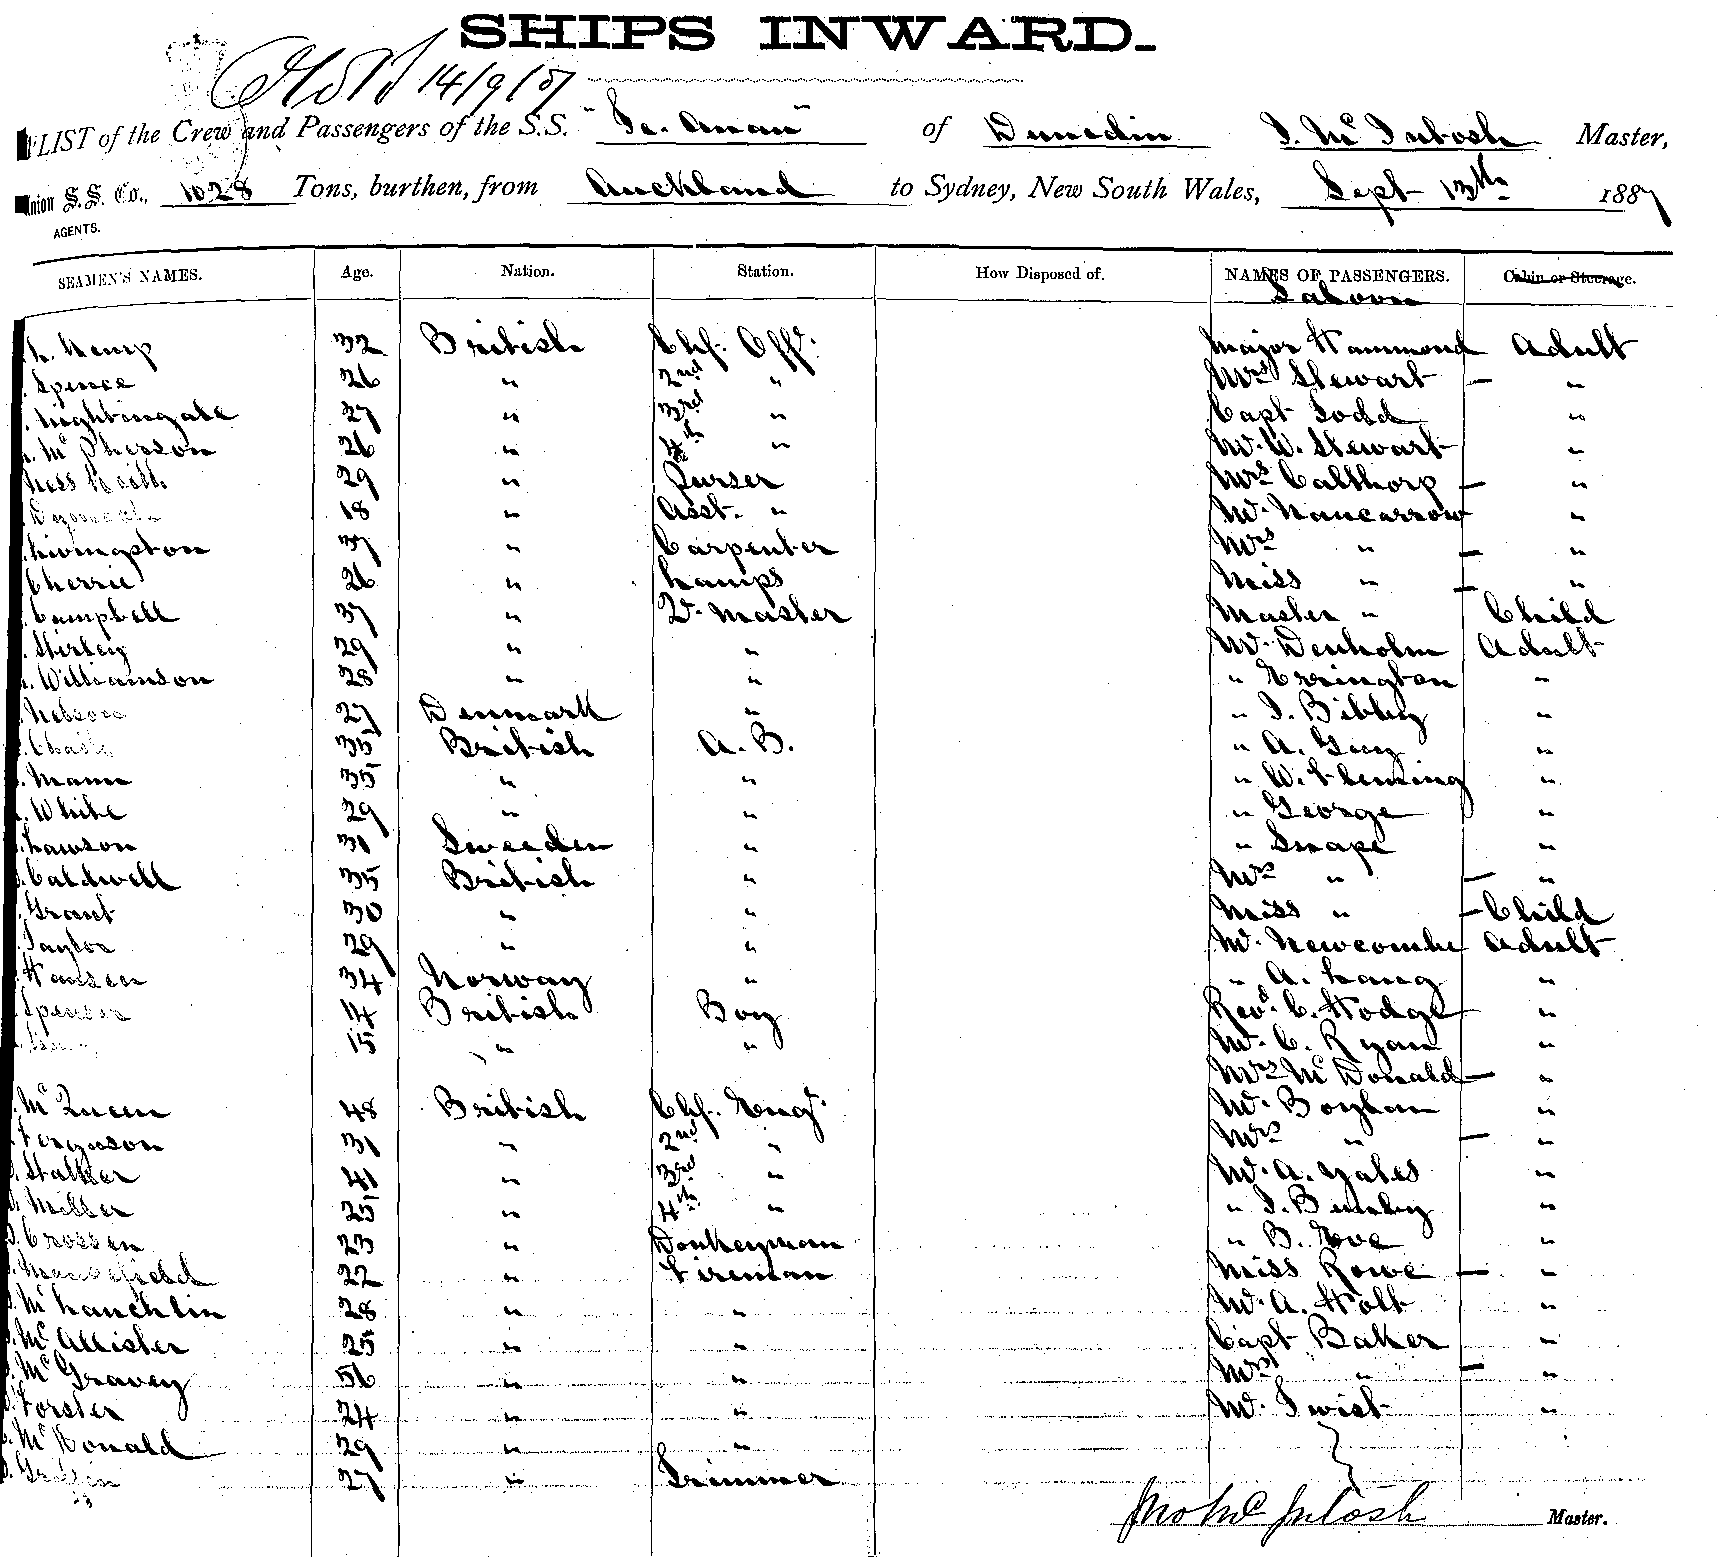 SHIPS INWARD.
14/9/87
LIST of the Crew and Passengers of the S.S. "Te. Anau" of Dunedin J. McIntosh Master,
Union S.S. Co., 1028 Tons, burthen, from Auckland to Sydney, New South Wales, Sept 13th 1887
AGENTS.
SEAMEN'S NAMES. Age. Nation. Station. How Disposed of. NAMES OF PASSENGERS. Cabin or Steerage.
Saloon
Kemp 32 British Chf. Offr. Major Hammond Adult
Spence 26 " 2nd " Mrs Stewart — "
Nightingale 27 " 3rd " Capt Todd "
McPherson 26 " 4th " Mr. W. Stewart "
29 " Purser Mrs Calthorp — "
18 " Asst. " Mr. Nancarrow "
Livingston 37 " Carpenter Mrs " — "
Cherrie 26 " Lamps Miss " — "
Campbell 37 " Qr. Master Master " Child
Stirling 29 " " Mr. Denholm Adult
Williamson 28 " " " Errington "
Nelson 27 Denmark " " J. Bibby "
35 British A. B. " A. Guy "
Mann 35 " " " W. Fleming "
White 29 " " " George "
Lawson 31 Sweeden " " Snape "
Caldwell 35 British " Mrs " — "
Grant 30 " " Miss " — Child
Taylor 29 " " Mr. Newcombe Adult
Hansen 34 Norway " " A. Lang "
Spencer 14 British Boy Revd. C. Hodge "
15 " " Mr. C. Ryan "
Mrs McDonald — "
McQueen 48 British Chf. Engr. Mr. Boylan "
Ferguson 31 " 2nd " Mrs " — "
Stalker 41 " 3rd " Mr. A. Yates "
Miller 25 " 4th " " J. "
Crossen 23 " Donkeyman " B. Eve "
Mansfield 22 " Fireman Miss Rowe — "
McLauchlin 28 " " Mr. A. Holt "
McAllister 25 " " Capt Baker "
McGravey 56 " " Mrs " — "
Forster 24 " " Mr. Twist "
McDonald 29 " "
27 " Trimmer
Jno McIntosh Master.